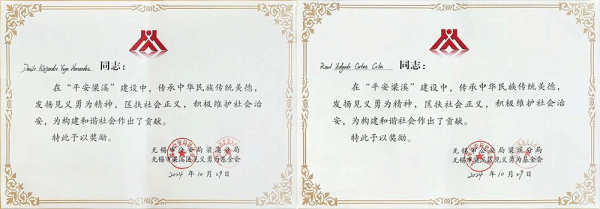 同志：
在“平安梁溪”建设中，传承中华民族传统美德，
发扬见义勇为精神，匡扶社会正义，积极维护社会治
安，为构建和谐社会作出了贡献。
特此予以奖励。
无锡市公安局梁溪分局
无锡市梁溪区见义勇为基金会
2024年10月29日
同志：
在“平安梁溪”建设中，传承中华民族传统美德，
发扬见义勇为精神，匡扶社会正义，积极维护社会治
安，为构建和谐社会作出了贡献。
特此予以奖励。
无锡市公安局梁溪分局
无锡市梁溪区见义勇为基金会
2024年10月29日